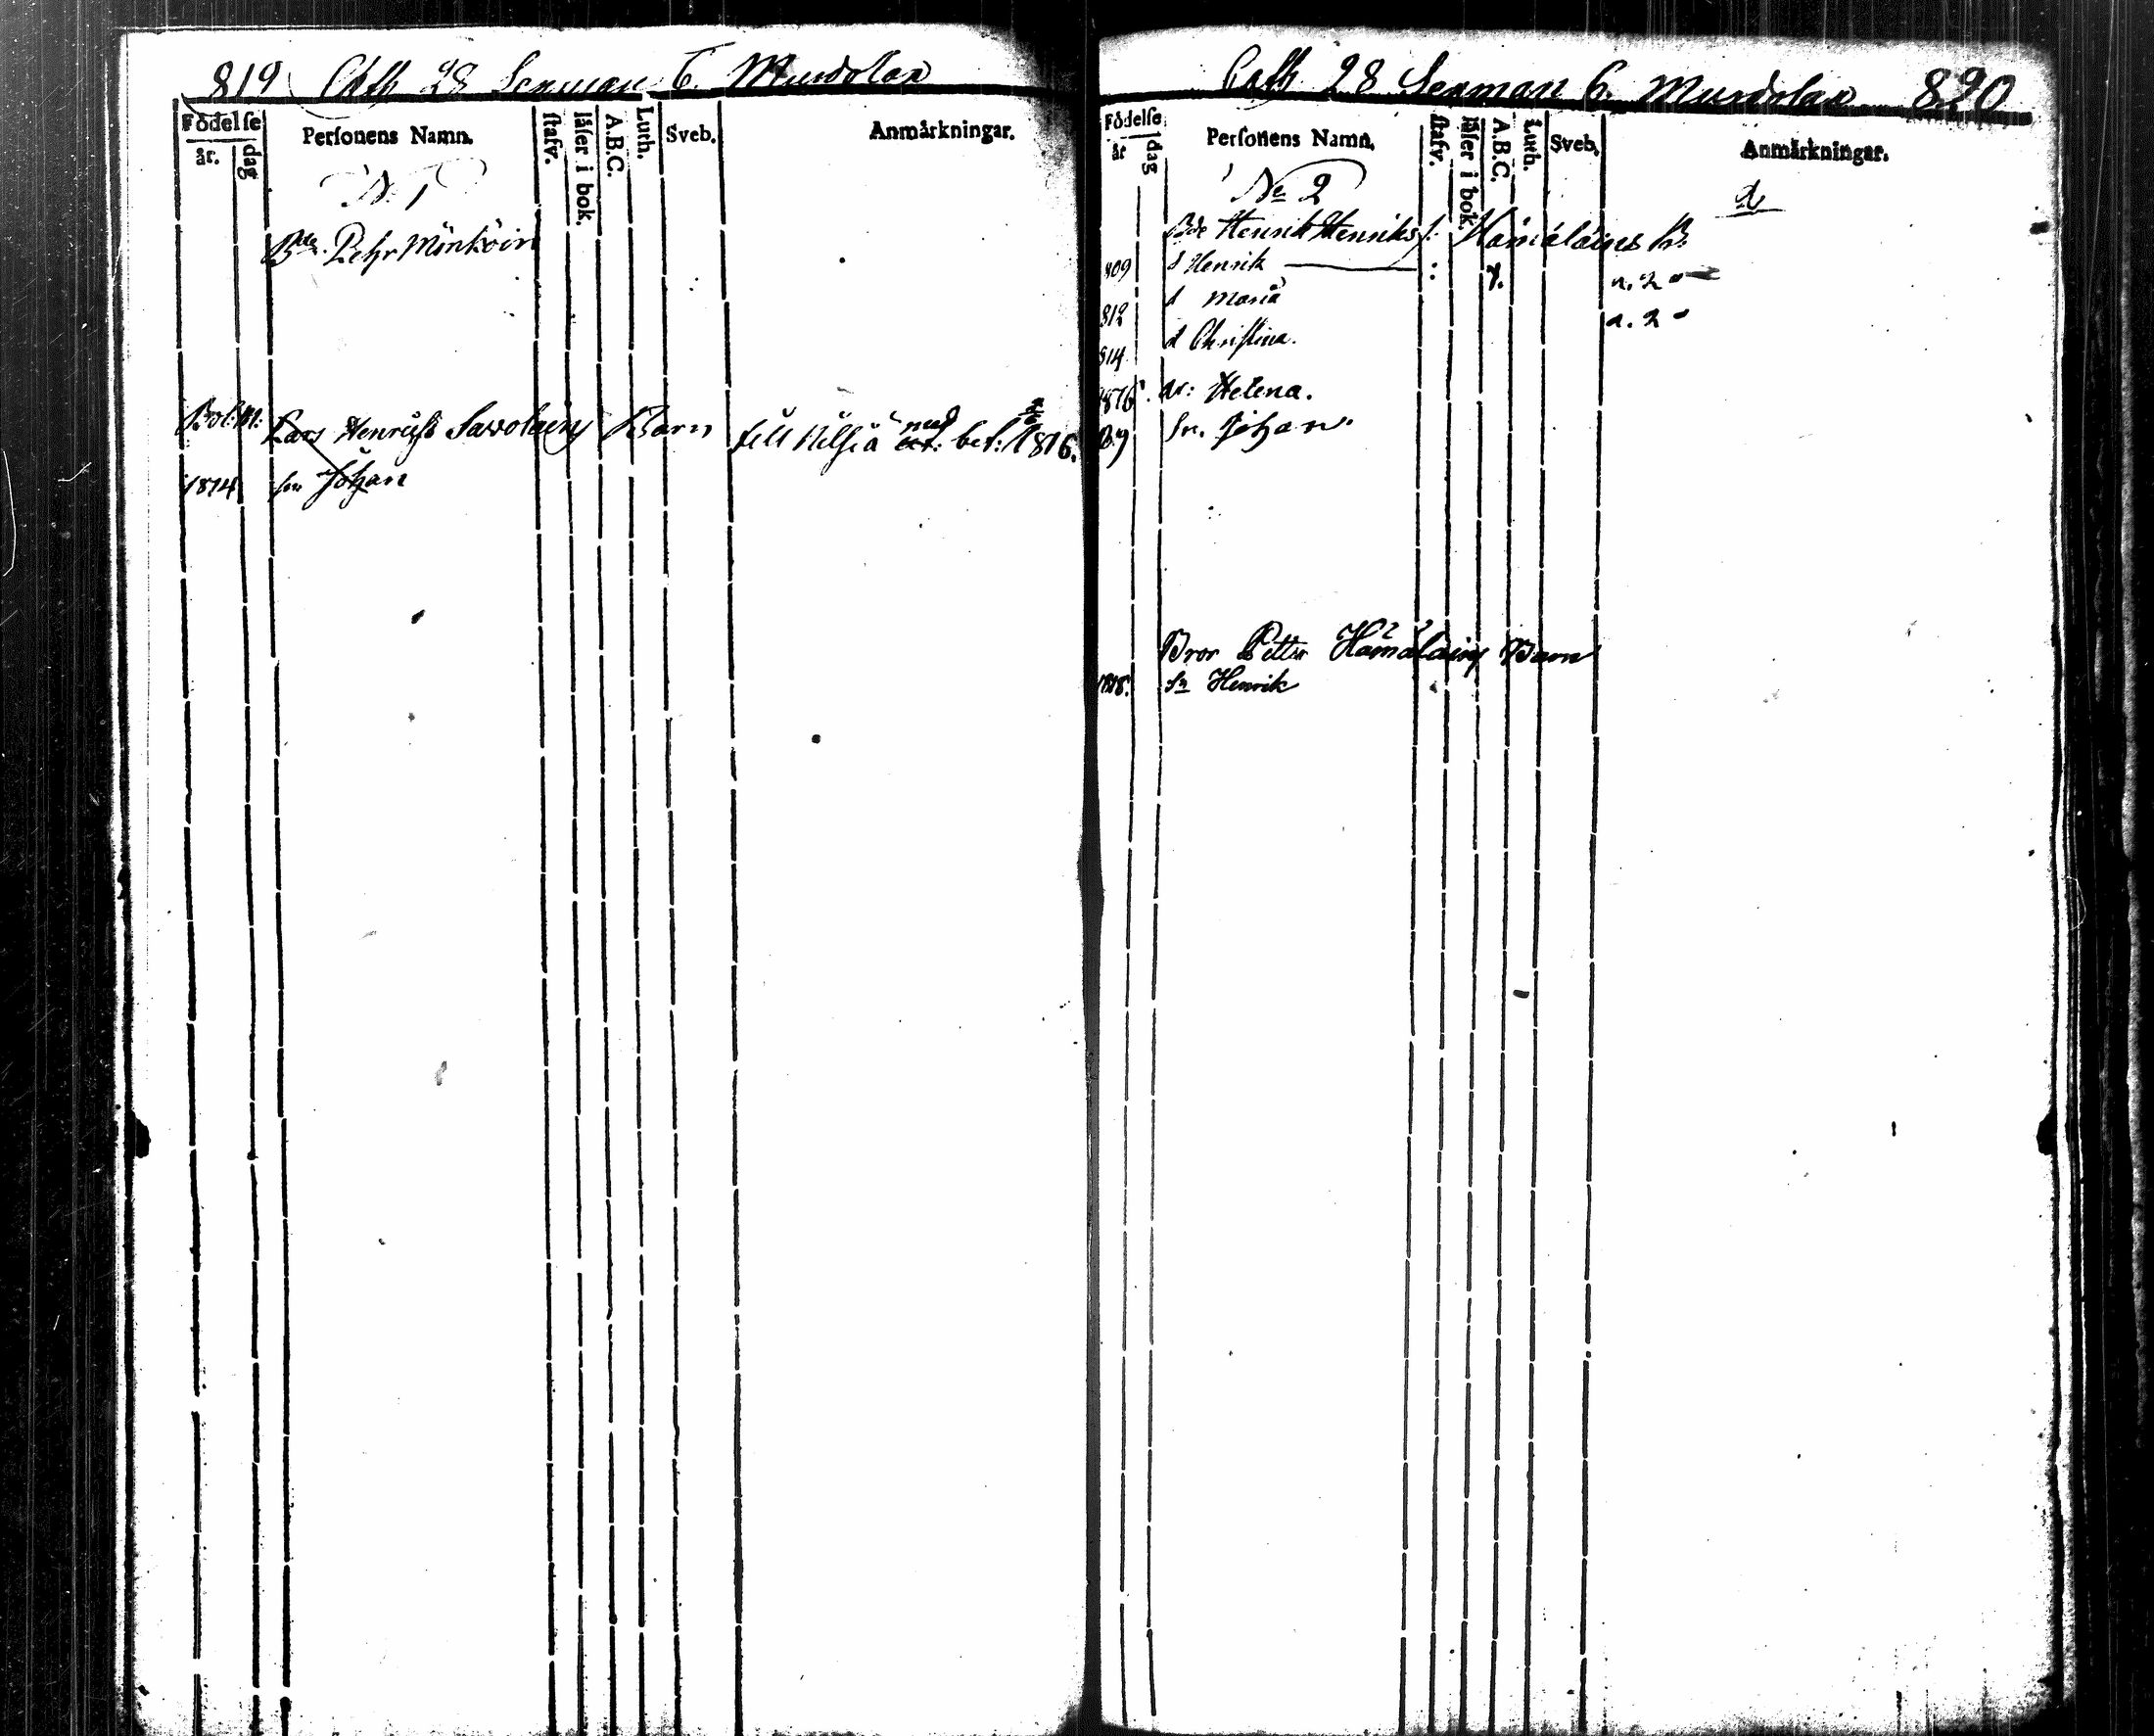 819 Cath 28 Senman 6. Murdolax
Födelse
år. dag
Personens Namn.
stafv.
läser i bok.
A.B.C.
Luth.
Sveb.
Anmärkningar.
N. 1
Bde. Pehr Mönköin
Bol:m: Lars Henrichs Savolains Barn till Nilsiä med bet: 1816.
1814 sn Johan
Cath 28 Senman 6. Murdolax 820
Födelse
år dag
Personens Namn.
stafv.
läser i bok.
A.B.C.
Luth.
Sveb.
Anmärkningar.
No 2
Bde Henrik Henriks s. Hämäläines B.
809 d Henrik : n. 2
812 d Maria a. 2
814 d Christina.
1816. Helena.
Sn. Johan.
Bror Petter Hämäläins Barn
1818. Sn Henrik